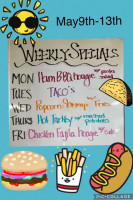 May9th-13th
WEEKLY Specials
MON Ham BBQ hoagie w/ pasta salad
TUES TACO's
WED Popcorn Shrimp Fries
THURS Hot Turkey w/ mashed potatoes
FRI Chicken Fajita Hoagie w/
PIC•COLLAGE